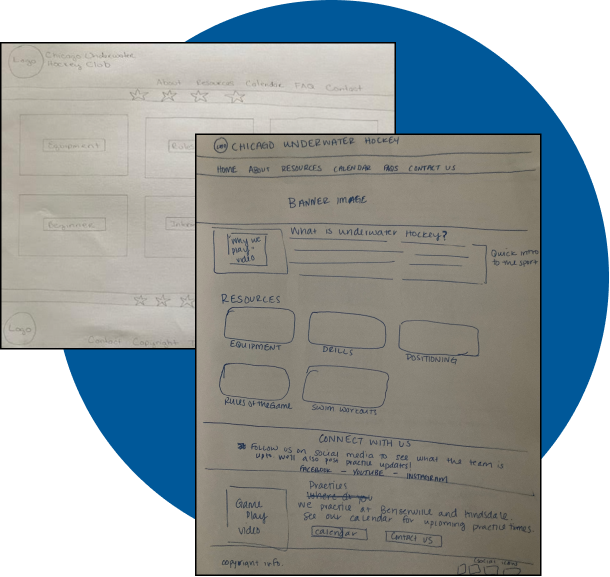 Logo
Chicago Underwater
Hockey Club
About Resources Calendar FAQ Contact
Equipment
Rules
Beginner
Logo
Contact Copyright
LOGO CHICAGO UNDERWATER HOCKEY
HOME ABOUT RESOURCES CALENDAR FAQS CONTACT US
BANNER IMAGE
"Why we
play"
video
What is underwater Hockey?
Quick intro
to the sport
RESOURCES
EQUIPMENT
DRILLS
POSITIONING
RULES of the Game
SWIM WORKOUTS
CONNECT WITH US
FOLLOW US on social media to see what the team is
upto. We'll also post practice updates!
FACEBOOK - YOUTUBE - INSTAGRAM
Game
Play
video
Practices
Where do you
We practice at Bensenville and Hindsdale.
See our calendar for upcoming practice times.
calendar
Contact us
copyright info.
Social icons